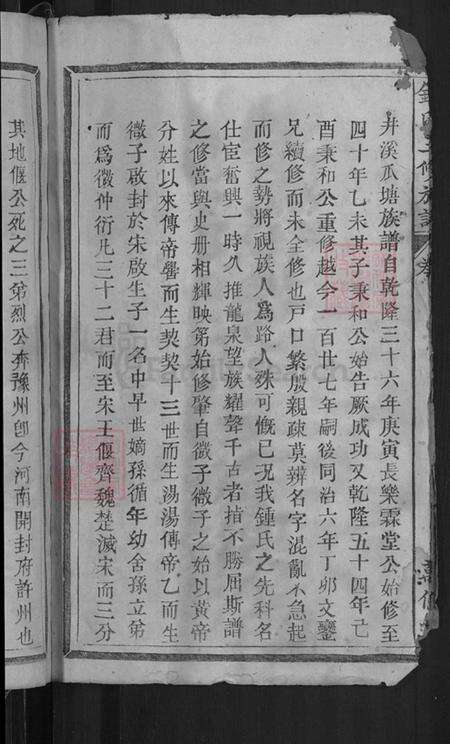 井溪瓜塘族譜自乾隆三十六年庚寅長樂霖堂公始修至
四十年乙未其子秉和公始告厥成功又乾隆五十四年己
酉秉和公重修越今一百廿七年嗣後同治六年丁卯文鑒
兄續修而未全修也戸口繁殷親疎莫辨名字混亂不急起
而修之勢將視族人爲路人殊可慨已况我鍾氏之先科名
仕宦奮興一時久推龍泉望族耀聲千古者指不勝屈斯譜
之修當與史册相輝映第始修肇自微子微子之始以黄帝
分姓以來傳帝嚳而生契契十三世而生湯湯傳帝乙而生
微子啟封於宋啟生子一名中早世嫡孫循年幼舍孫立弟
而爲微仲衍凡三十二君而至宋王偃齊魏楚滅宋而三分
其地偃公死之三弟烈公奔豫州卽今河南開封府許州也